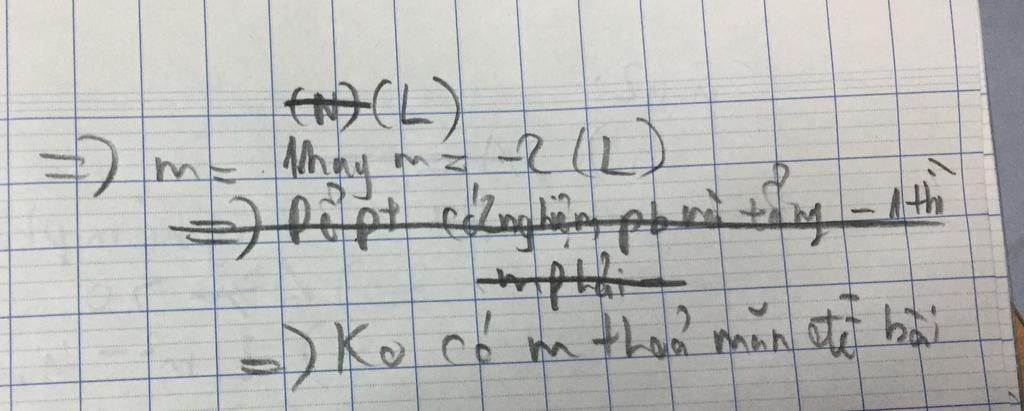 (N) (L)
=) m = 1 hay m = -2 (L)
=) Để pt có 2 nghiệm pb mà tổng - 1 thì
m phải
=) Ko có m thoả mãn đề bài